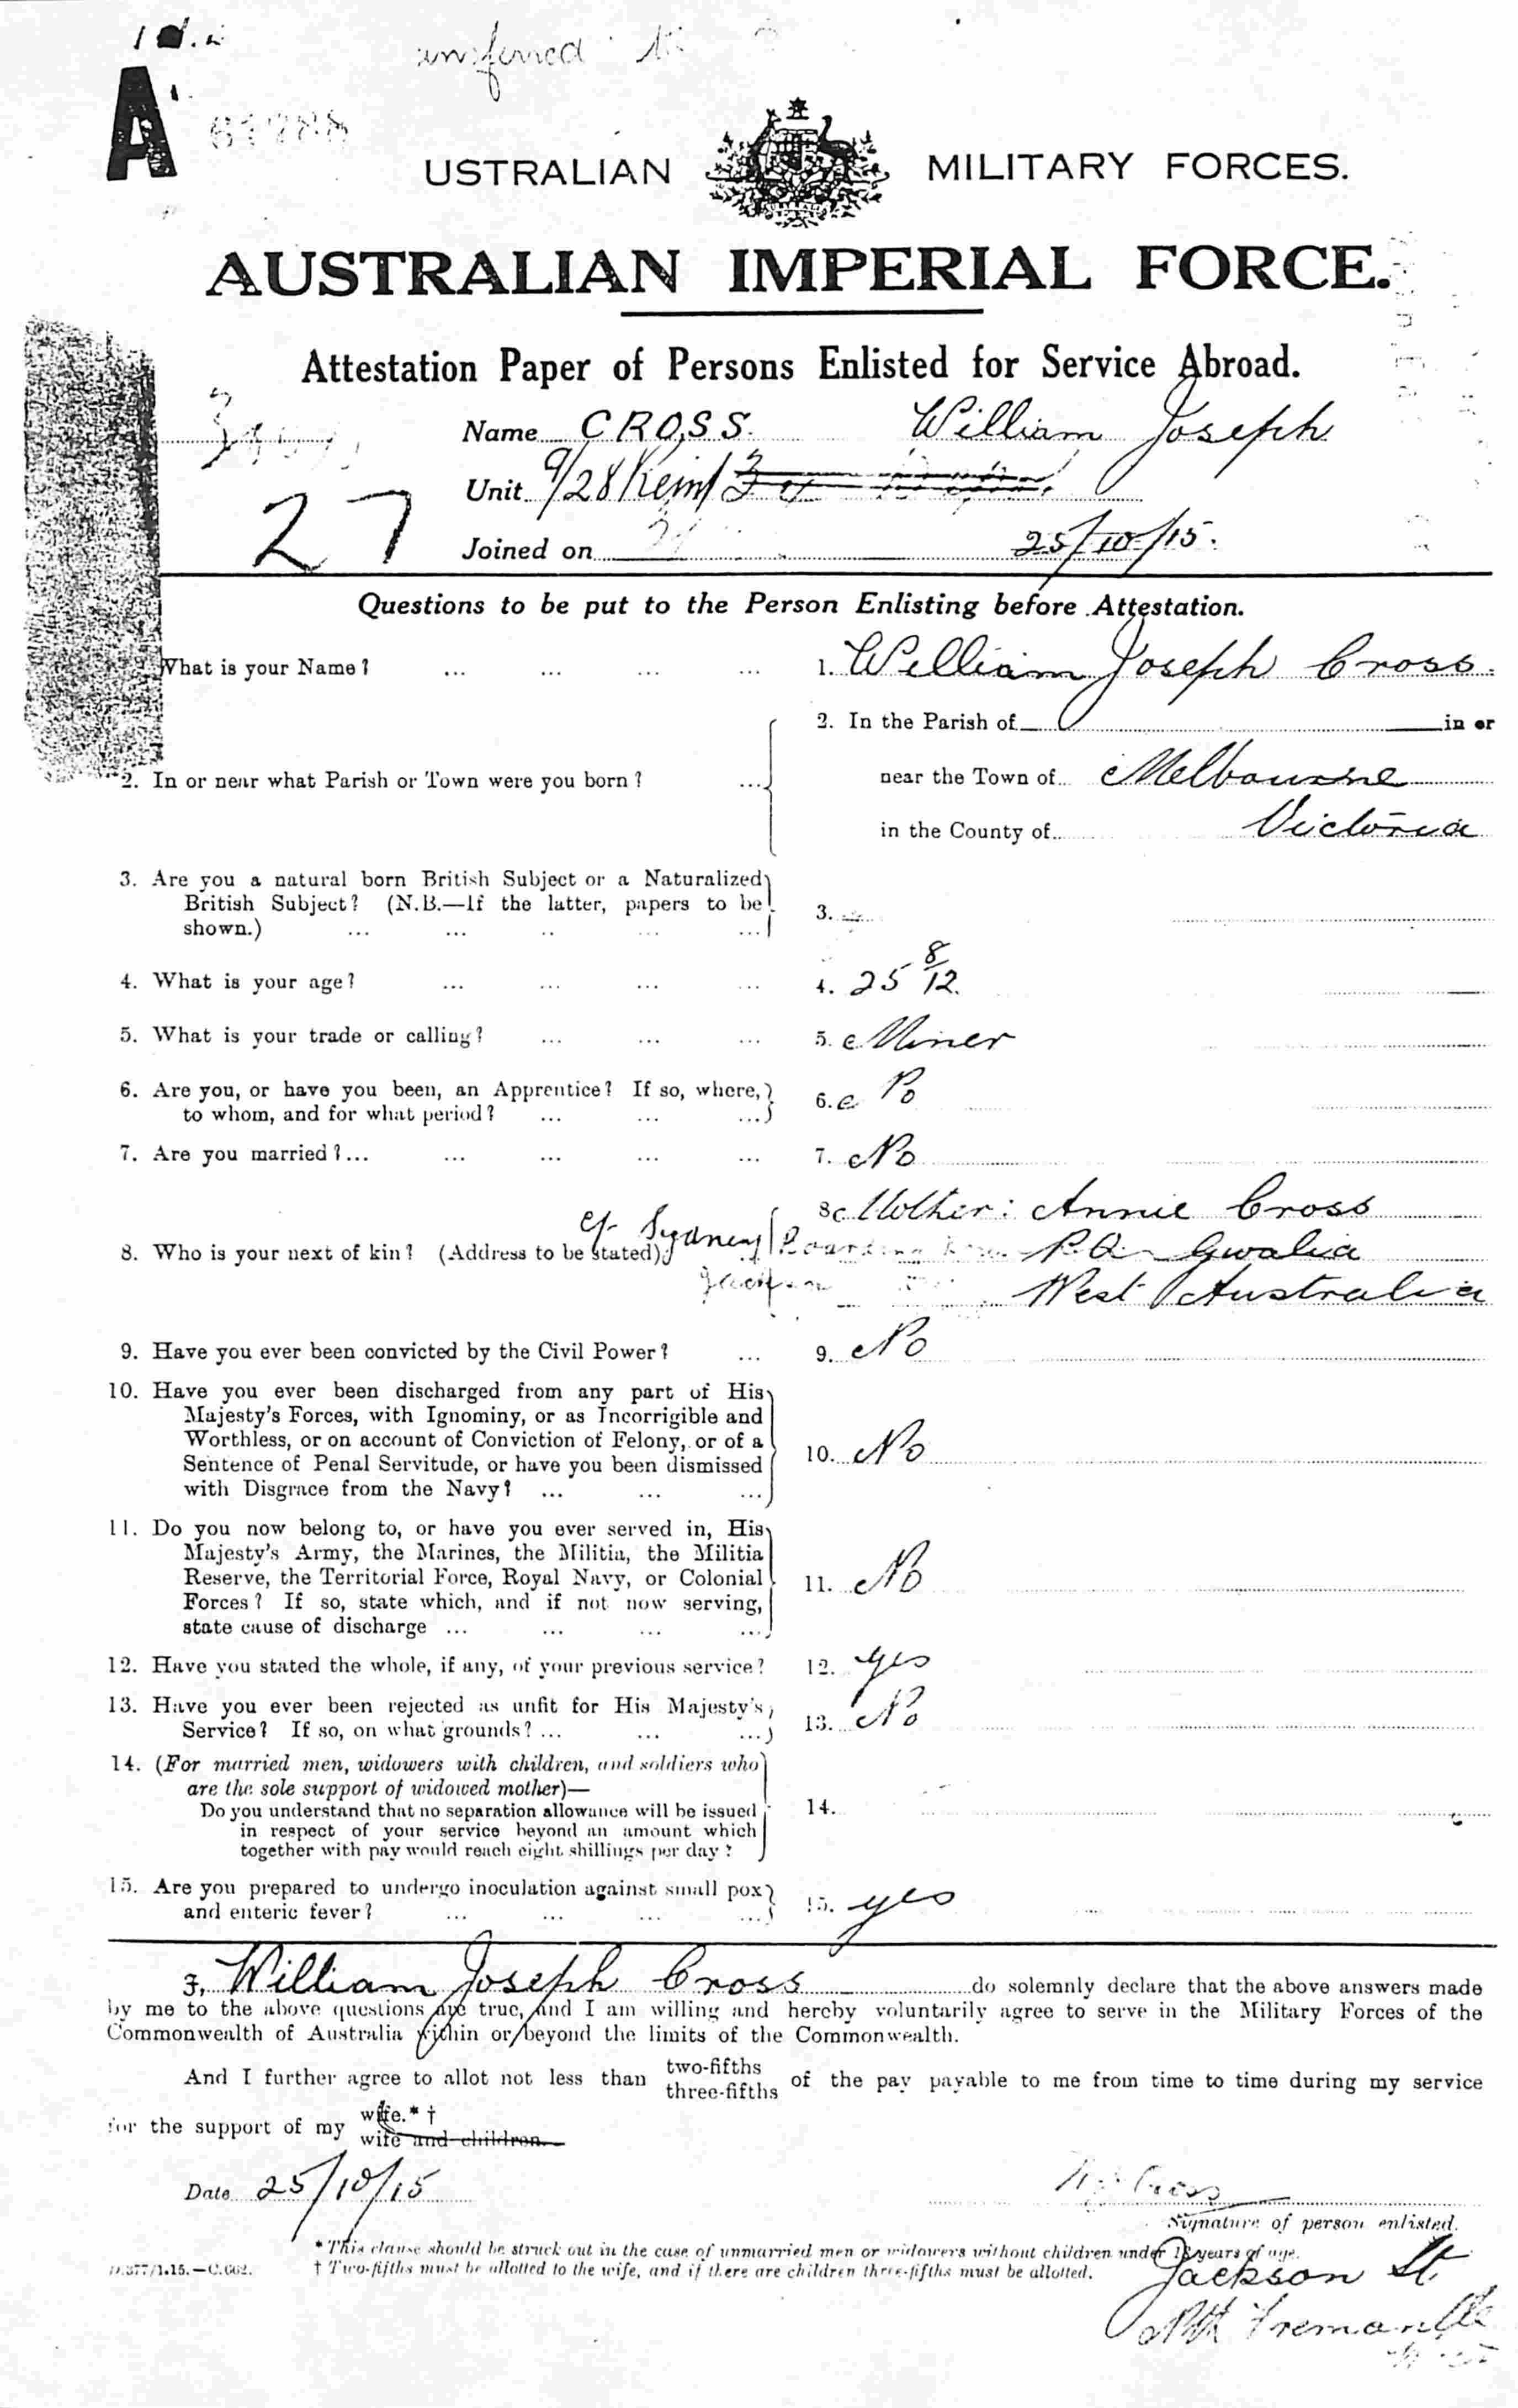 A
USTRALIAN MILITARY FORCES.
AUSTRALIAN IMPERIAL FORCE.
Attestation Paper of Persons Enlisted for Service Abroad.
Name CROSS. William Joseph
Unit 9/28 Reinf
27
Joined on 25/10/15.
Questions to be put to the Person Enlisting before Attestation.
What is your Name? ... ... ... ... 1. William Joseph Cross.
2. In or near what Parish or Town were you born? ...
2. In the Parish of in or
near the Town of Melbourne
in the County of Victoria
3. Are you a natural born British Subject or a Naturalized
British Subject? (N.B.—If the latter, papers to be
shown.) ... ... .. ... ... 3.
4. What is your age? ... ... ... ... 4. 25 8/12.
5. What is your trade or calling? ... ... ... 5. Miner
6. Are you, or have you been, an Apprentice? If so, where,
to whom, and for what period? ... ... ... 6. No
7. Are you married?... ... ... ... ... 7. No
8. Who is your next of kin? (Address to be stated)
8. Mother: Annie Cross
P.O. Gwalia
West Australia
c/- Sydney
9. Have you ever been convicted by the Civil Power? ... 9. No
10. Have you ever been discharged from any part of His
Majesty's Forces, with Ignominy, or as Incorrigible and
Worthless, or on account of Conviction of Felony, or of a
Sentence of Penal Servitude, or have you been dismissed
with Disgrace from the Navy? ... ... ... 10. No
11. Do you now belong to, or have you ever served in, His
Majesty's Army, the Marines, the Militia, the Militia
Reserve, the Territorial Force, Royal Navy, or Colonial
Forces? If so, state which, and if not now serving,
state cause of discharge ... ... ... ... 11. No
12. Have you stated the whole, if any, of your previous service? 12. yes
13. Have you ever been rejected as unfit for His Majesty's
Service? If so, on what grounds? ... ... ... 13. No
14. (For married men, widowers with children, and soldiers who
are the sole support of widowed mother)—
Do you understand that no separation allowance will be issued
in respect of your service beyond an amount which
together with pay would reach eight shillings per day? 14.
15. Are you prepared to undergo inoculation against small pox
and enteric fever? ... ... ... ... 15. yes
I, William Joseph Cross do solemnly declare that the above answers made
by me to the above questions are true, and I am willing and hereby voluntarily agree to serve in the Military Forces of the
Commonwealth of Australia within or beyond the limits of the Commonwealth.
And I further agree to allot not less than two-fifths three-fifths of the pay payable to me from time to time during my service
for the support of my wife.* † wife and children
Date 25/10/15
W J Cross
Signature of person enlisted.
* This clause should be struck out in the case of unmarried men or widowers without children under 18 years of age.
D.377/1.15.—C.662. † Two-fifths must be allotted to the wife, and if there are children three-fifths must be allotted.
Jackson St
Nth Fremantle